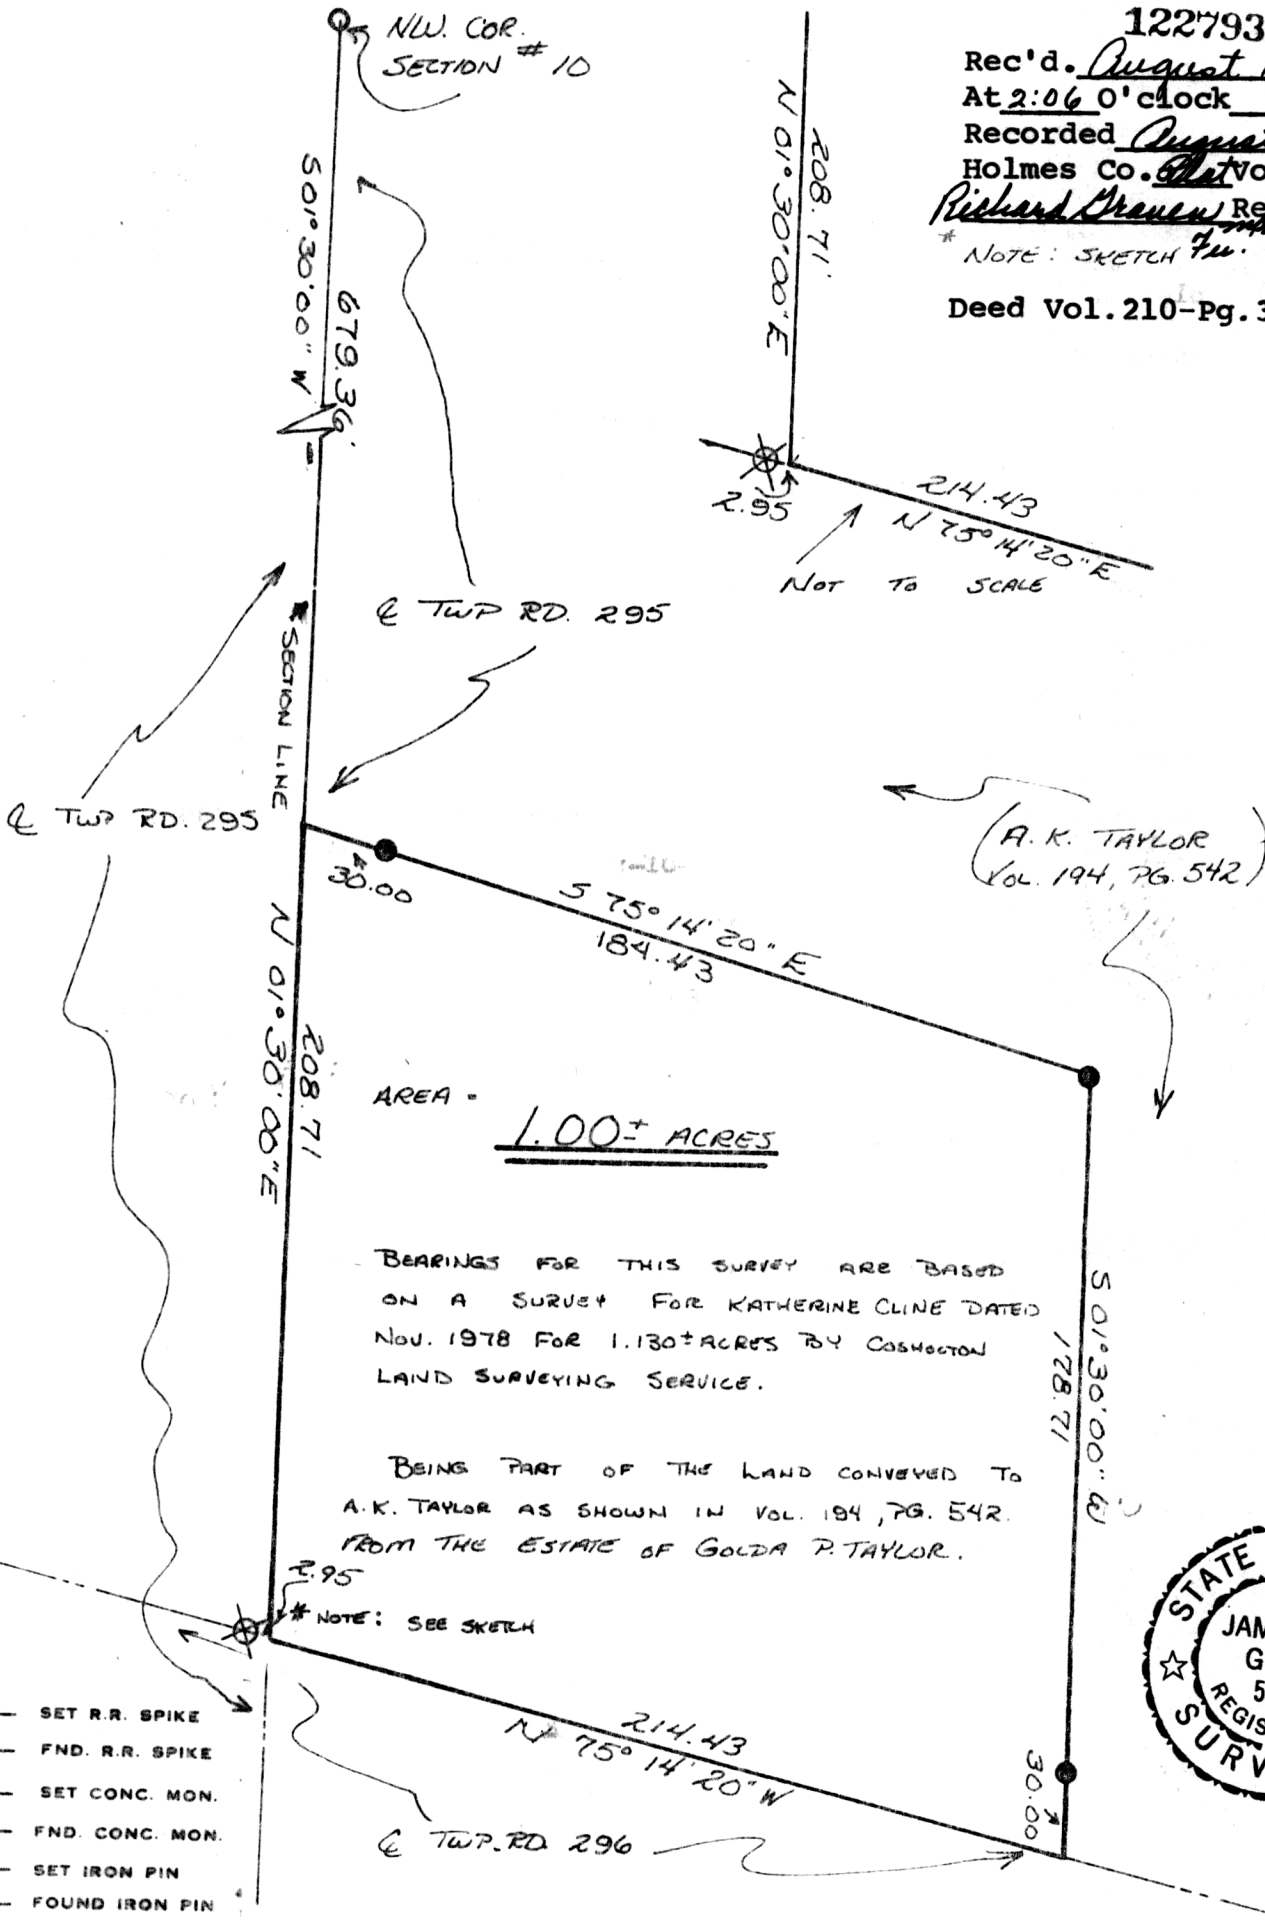 NW. COR.
SECTION # 10
122793
Rec'd. August
At 2:06 O'clock
Recorded August
Holmes Co. Plat Vo
Richard Graven Re
* NOTE: SKETCH
Deed Vol.210-Pg.3
S 01° 30' 00" W
679.36'
N 01° 30' 00" E
208.71'
2.95
214.43
N 75° 14' 20" E
NOT TO SCALE
℄ TWP RD. 295
* SECTION LINE
℄ TWP RD. 295
(A. K. TAYLOR
VOL. 194, PG. 542)
30.00
S 75° 14' 20" E
184.43
N 01° 30' 00" E
208.71
AREA =
1.00± ACRES
BEARINGS FOR THIS SURVEY ARE BASED
ON A SURVEY FOR KATHERINE CLINE DATED
NOV. 1978 FOR 1.130± ACRES BY COSHOCTON
LAND SURVEYING SERVICE.
S 01° 30' 00" W
178.71
BEING PART OF THE LAND CONVEYED TO
A.K. TAYLOR AS SHOWN IN VOL. 194, PG. 542
FROM THE ESTATE OF GOLDA P. TAYLOR.
2.95
* NOTE: SEE SKETCH
214.43
N 75° 14' 20" W
30.00
℄ TWP. RD. 296
STATE
JAM
G
5
REGIS
SURV
— SET R.R. SPIKE
— FND. R.R. SPIKE
— SET CONC. MON.
— FND. CONC. MON.
— SET IRON PIN
— FOUND IRON PIN